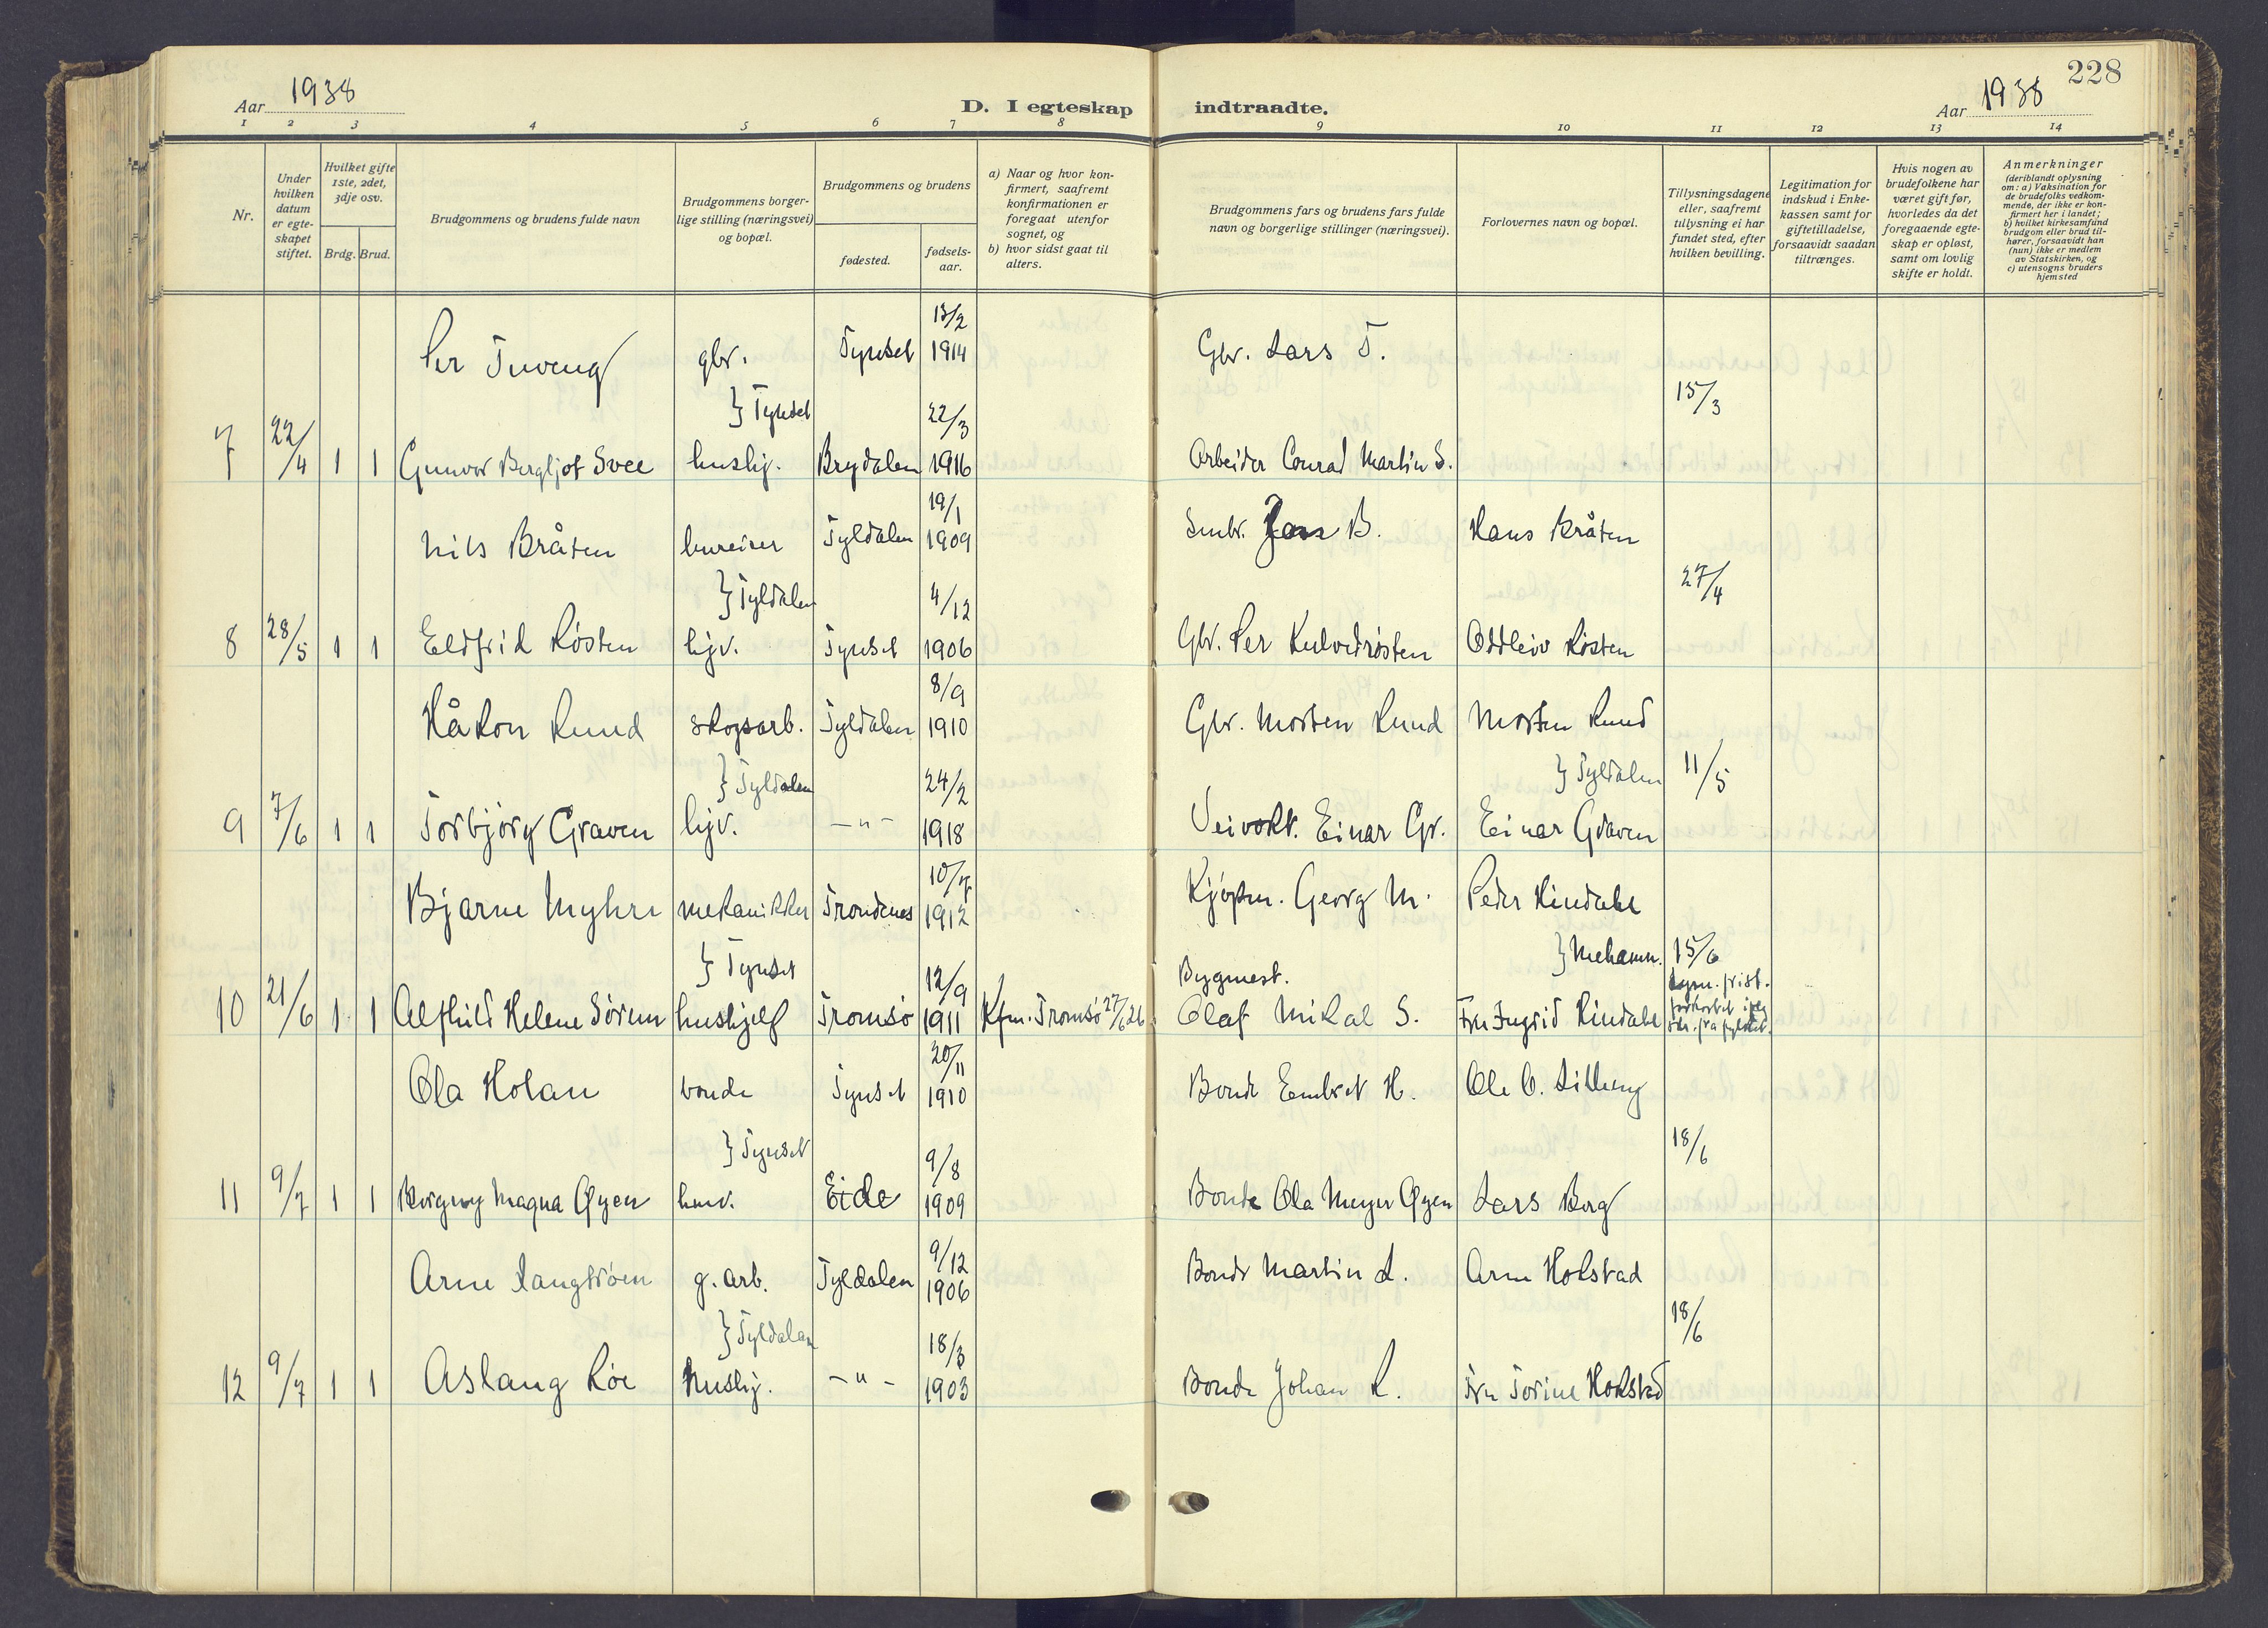 228
Aar 1938
D. I egteskap indtraadte.
Aar 1938
1 2 3 4 5 6 7 8 9 10 11 12 13 14
Nr.
Under hvilken datum er egteskapet stiftet.
Hvilket gifte 1ste, 2det, 3dje osv.
Brdg. Brud.
Brudgommens og brudens fulde navn
Brudgommens borgerlige stilling (næringsvei) og bopæl.
Brudgommens og brudens
fødested.
fødselsaar.
a) Naar og hvor konfirmert, saafremt konfirmationen er foregaat utenfor sognet, og
b) hvor sidst gaat til alters.
Brudgommens fars og brudens fars fulde navn og borgerlige stillinger (næringsvei).
Forlovernes navn og bopæl.
Tillysningsdagene eller, saafremt tillysning ei har fundet sted, efter hvilken bevilling.
Legitimation for indskud i Enkekassen samt for giftetilladelse, forsaavidt saadan tiltrænges.
Hvis nogen av brudefolkene har været gift før, hvorledes da det foregaaende egteskap er opløst, samt om lovlig skifte er holdt.
Anmerkninger (deriblandt oplysning om: a) Vaksination for de brudefolks vedkommende, der ikke er konfirmert her i landet; b) hvilket kirkesamfund brudgom eller brud tilhører, forsaavidt han (hun) ikke er medlem av Statskirken, og c) utensogns bruders hjemsted
Per Tuveng gbr. Tynset 13/2 1914 Gbr. Lars T.
} Tynset 15/3
7 22/4 1 1 Gunvor Bergljot Svee hushj. Brydalen 22/3 1916 Arbeider Conrad Martin S.
Nils Bråten bureiser Tyldalen 19/1 1909 Smbr. Jon B. Hans Bråten
} Tyldalen 27/4
8 28/5 1 1 Eldfrid Røsten hjv. Tynset 4/12 1906 Gbr. Per Kulvedrøsten Oddleiv Røsten
Håkon Lund skogsarb. Tyldalen 8/9 1910 Gbr. Morten Lund Morten Lund
} Tyldalen } Tyldalen 11/5
9 7/6 1 1 Torbjørg Graven hjv. -"- 24/2 1918 Veivokt. Einar Gr. Einar Graven
Bjarne Myhre mekaniker Trondenes 10/7 1912 Kjøpm. Georg M. Peder Hindahl
} Tynset } Mehamn. 15/6
10 21/6 1 1 Alfhild Helene Sørum hushjelp Tromsø 12/9 1911 Kfm. Tromsø 27/6 26 Bygmest. Olaf Mikal S. Fru Ingrid Hindahl
Ola Holan bonde Tynset 20/11 1910 Bonde Embret H. Ole O. Lilleng
} Tynset 18/6
11 9/7 1 1 Borgny Magna Øyen husv. Eide 9/8 1909 Bonde Ola Meyer Øyen Lars Berg
Arne Langtrøen g. arb. Tyldalen 9/12 1906 Bonde Martin L. Arne Hokstad
} Tyldalen 18/6
12 9/7 1 1 Aslaug Røe hushj. -"- 18/3 1903 Bonde Johan R. Fru Torine Hokstad